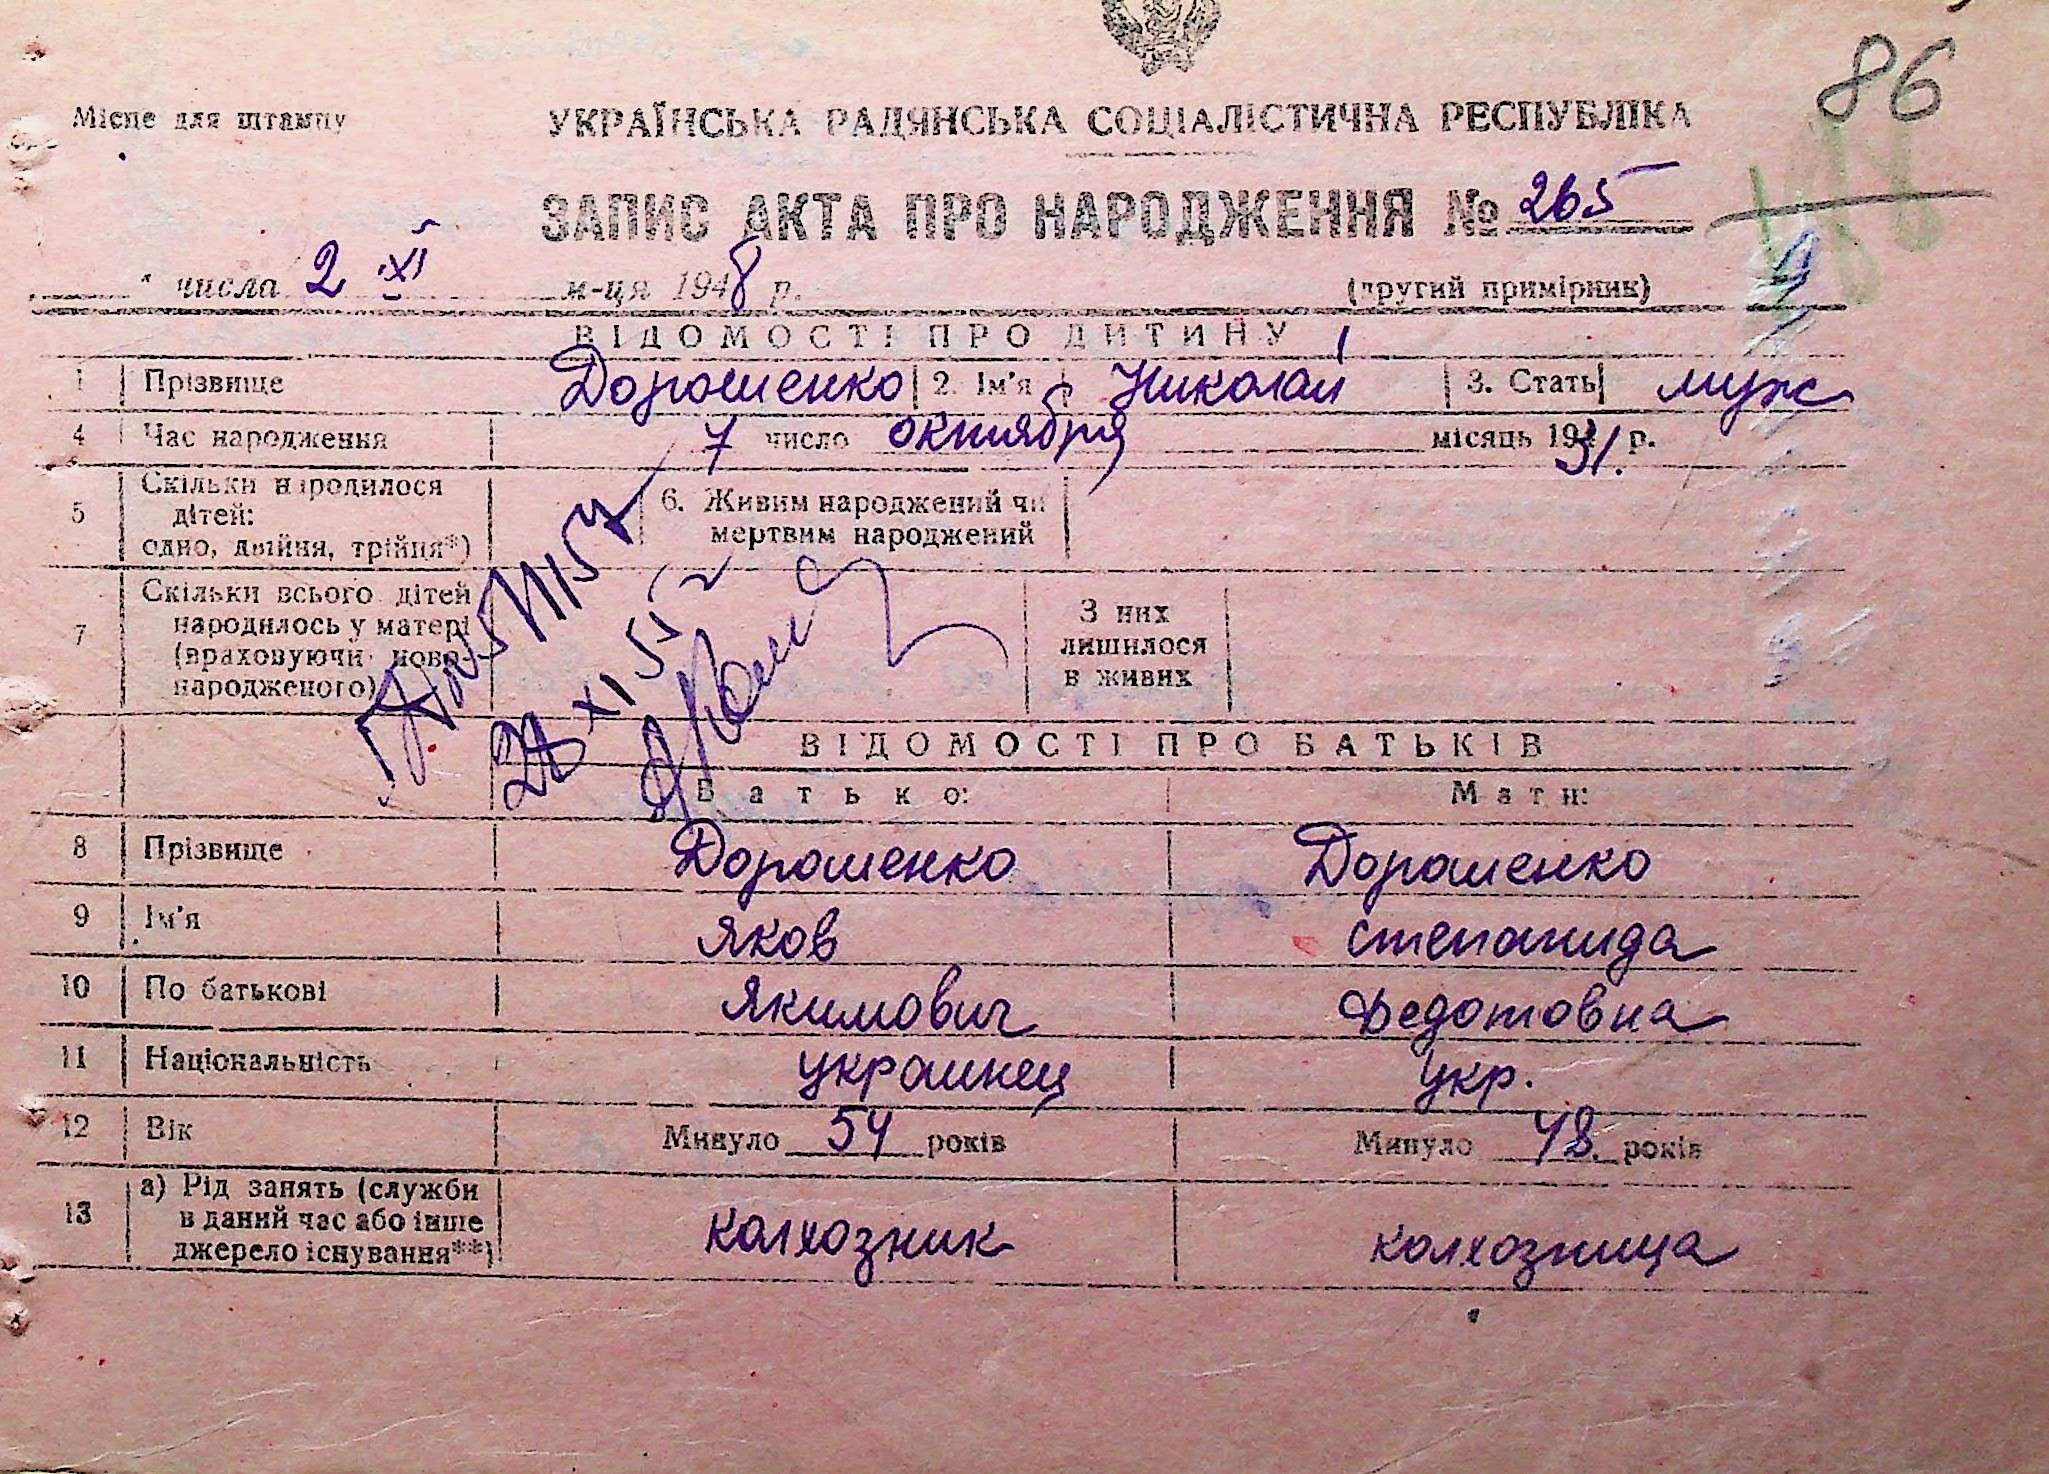 86
Місце для штампу
УКРАЇНСЬКА РАДЯНСЬКА СОЦІАЛІСТИЧНА РЕСПУБЛІКА
ЗАПИС АКТА ПРО НАРОДЖЕННЯ № 265
числа 2 XI м-ця 1948 р. (другий примірник)
ВІДОМОСТІ ПРО ДИТИНУ
1 Прізвище Дорошенко 2. Ім'я Николай 3. Стать муж
4 Час народження 7 число октября місяць 1931 р.
5 Скільки народилося
дітей:
одно, двійня, трійня*)
6. Живим народжений чи
мертвим народжений
7 Скільки всього дітей
народилось у матері
(враховуючи ново-
народженого)
З них
лишилося
в живих
28 XI 55
ВІДОМОСТІ ПРО БАТЬКІВ
Батько: Мати:
8 Прізвище Дорошенко Дорошенко
9 Ім'я Яков Степанида
10 По батькові Якимович Федотовна
11 Національність украинец укр.
12 Вік Минуло 54 років Минуло 48 років
13 а) Рід занять (служби
в даний час або інше
джерело існування**)
колхозник колхозница